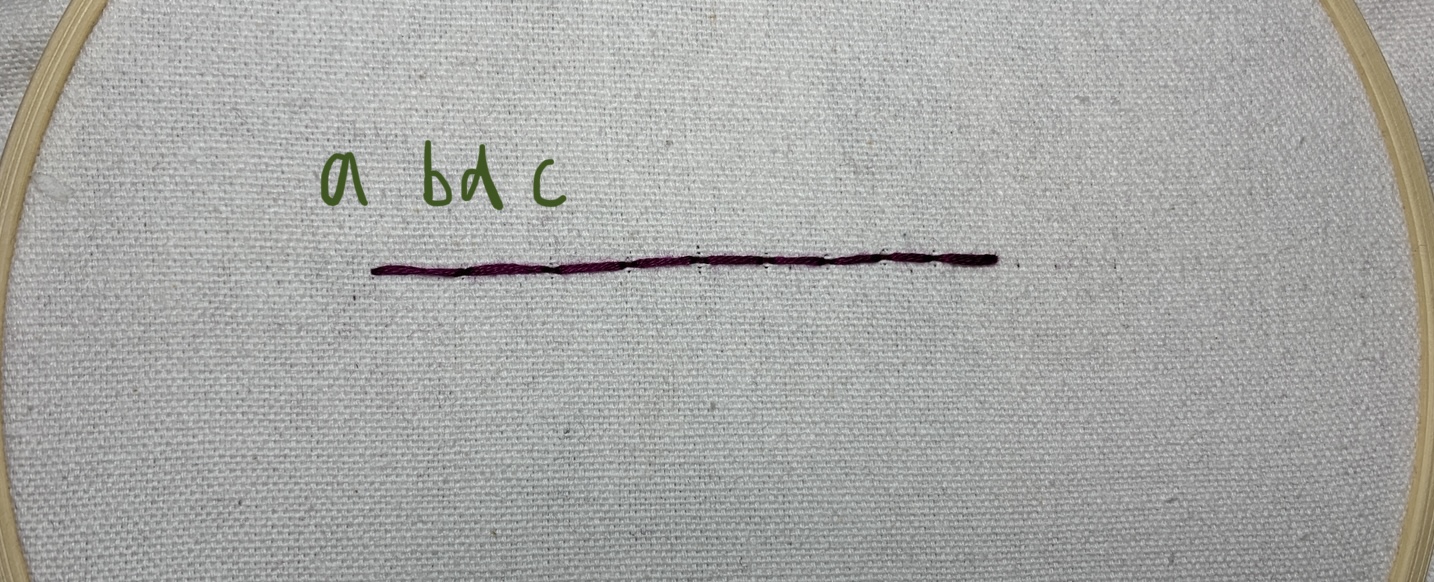 a bd c